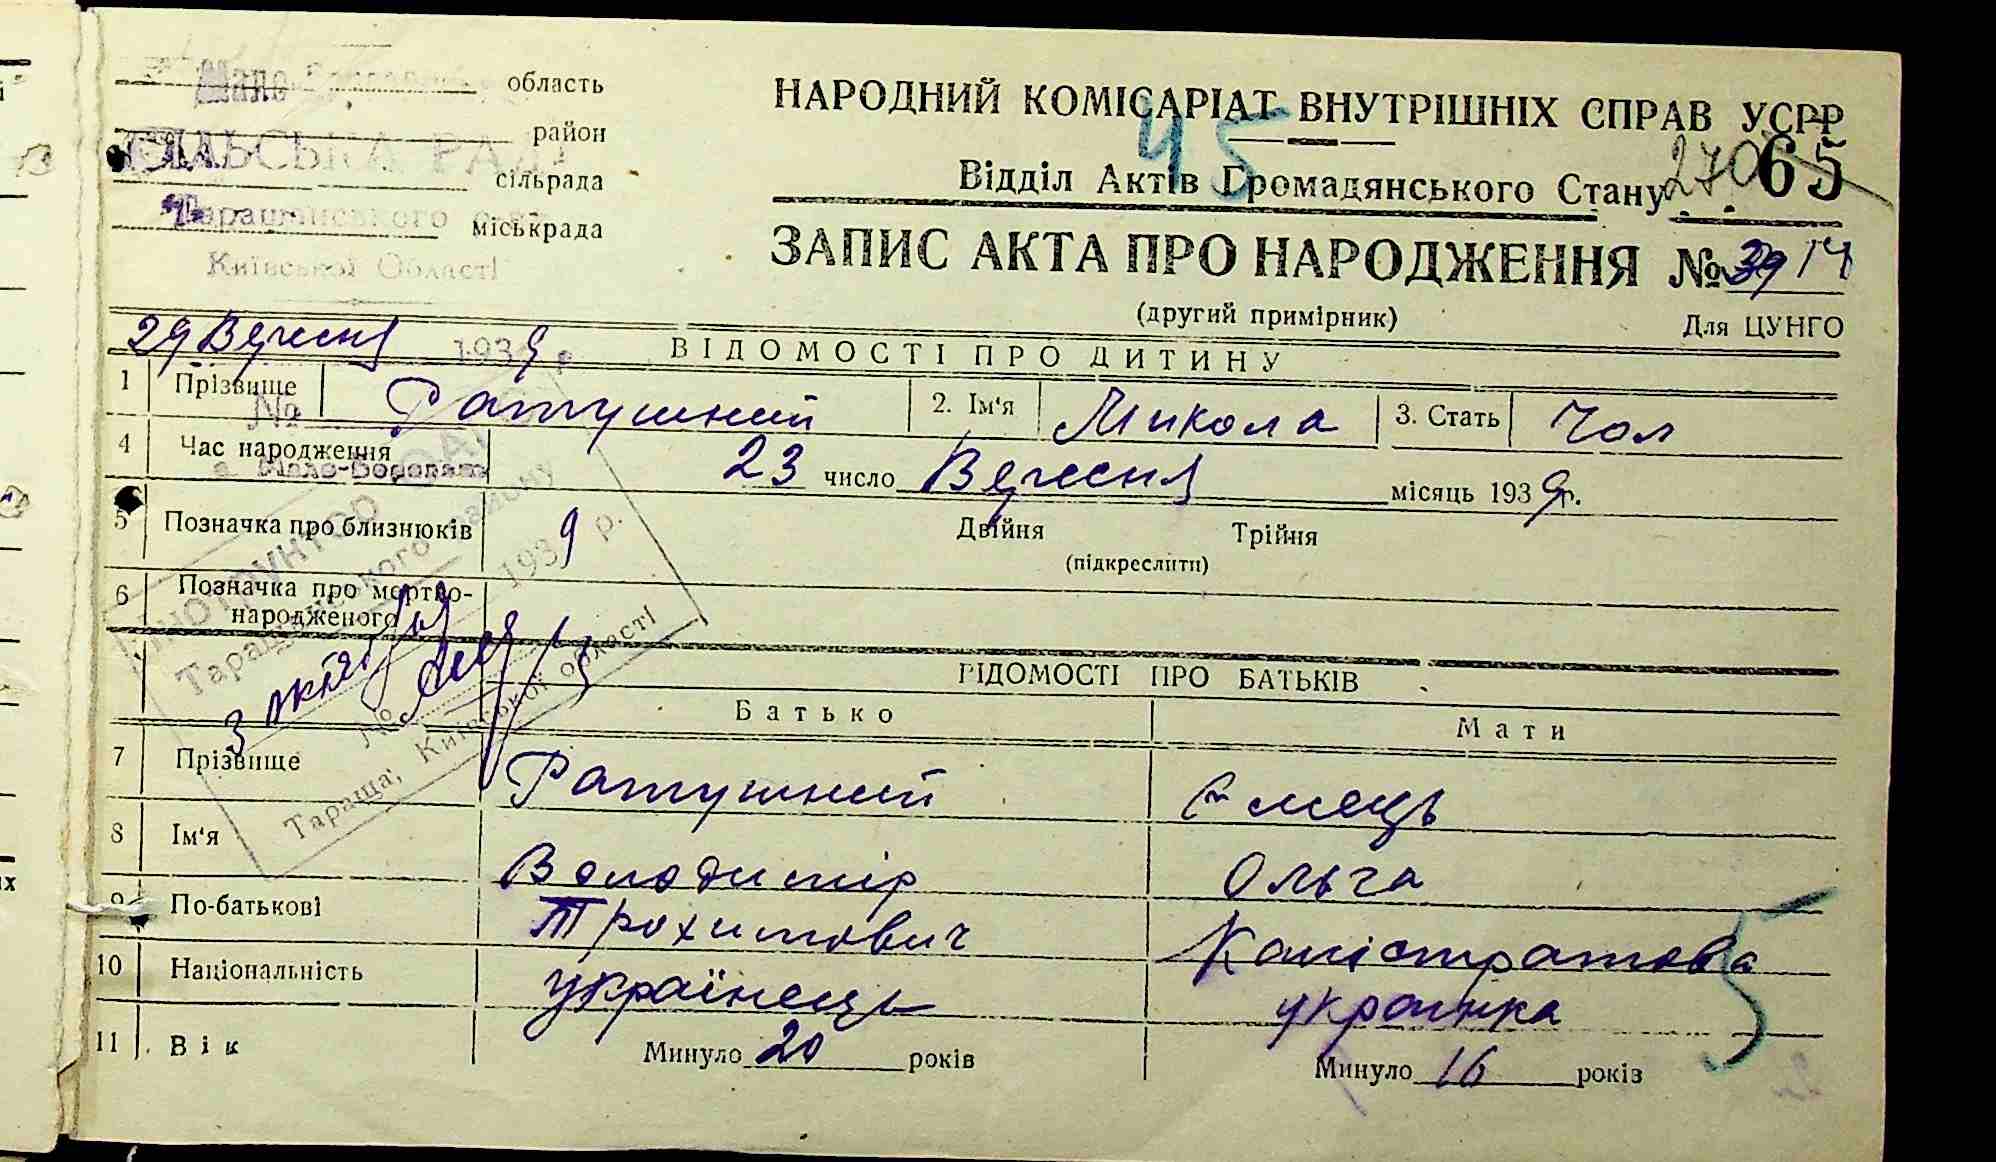 Мало- область
район
СІЛЬСЬКА РАДА сільрада
Таращанського міськрада
Київської Області
НАРОДНИЙ КОМІСАРІАТ ВНУТРІШНІХ СПРАВ УСРР
45
Відділ Актів Громадянського Стану 270 65
ЗАПИС АКТА ПРО НАРОДЖЕННЯ № 39 14
(другий примірник) Для ЦУНГО
29 Вересня 1939 р
ВІДОМОСТІ ПРО ДИТИНУ
1 Прізвище Ратушний 2. Ім'я Микола 3. Стать Чол
№
4 Час народження 23 число Вересня місяць 1939 р.
5 Позначка про близнюків Двійня Трійня
(підкреслити)
1939 р.
6 Позначка про мертво-
народженого
Таращанського району
3 октября
№
Тараща, Київської області
ВІДОМОСТІ ПРО БАТЬКІВ
Батько Мати
7 Прізвище Ратушний Ємець
8 Ім'я Володимір Ольга
9 По-батькові Трохимович Калістратова
10 Національність українець украінка
11 Вік Минуло 20 років Минуло 16 років
5